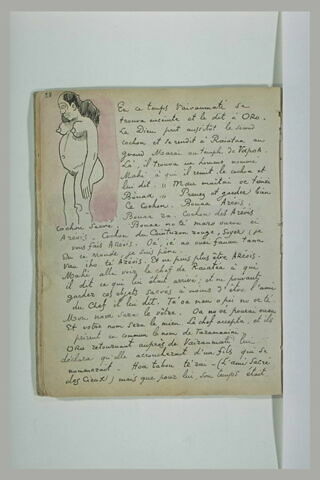 En ce temps Vaïraumati se
trouva enceinte et le dit à Oro.
Le Dieu prit aussitôt le second
cochon et se rendit à Raiatea au
grand Marai au temple de Vapoa.
Là, il trouva un homme nommé
Mahi à qui il remit le cochon et
lui dit. " Maü maitai oe teinei
Prenez et gardez bien
Ce Cochon. Bouaa Areois.
Bouaa ra. Cochon des Areois
cochon Sacré. Bouaa no té maro oura
Areois. Cochon du Ceinturon rouge, je
vous fais Areois. Oé, ié no oue
De ce monde, je suis père
Vau iho té Areois. Et ne puis plus être Areois.
Mahi alla voir le chef de Raiatea à qui
il dit ce qui lui était arrivé; et ne pouvant
garder ces objets sacrés à moins d'être l'ami
du Chef il lui dit. no oe ié
Mon nom sera le vôtre.
Et votre nom sera le mien. Le chef accepta, et ils
prirent en commun le nom de Taramanini.
Oro retournant auprès de Vairaumati lui
déclara qu'elle accoucherait d'un fils qui se
nommerait. Hoa tabou té raï. (L'ami Sacré
des Cieux) mais que pour lui son temps était